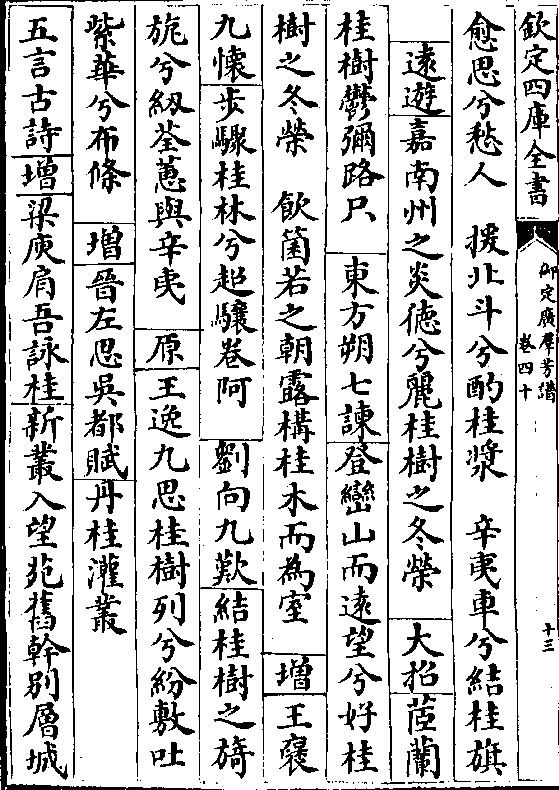 欽定四庫全書
御定廣羣芳譜 卷四十 十三
愈思兮愁人 援北斗兮酌桂漿 辛夷車兮結桂旗
遠遊 嘉南州之炎徳兮麗桂樹之冬榮 大招 茝蘭
桂樹鬱彌路只 東方朔七諫 登巒山而遠望兮好桂
樹之冬榮 飲菌若之朝露構桂木而為室 増 王襃
九懷 步驟桂林兮超驤卷阿 劉向九歎 結桂樹之旖
旎兮紉荃蕙與辛夷 原 王逸九思 桂樹列兮紛敷吐
紫華兮布條 増 晉左思吳都賦 丹桂灌叢
五言古詩 増 梁庾肩吾詠桂 新叢入望苑舊幹别層城